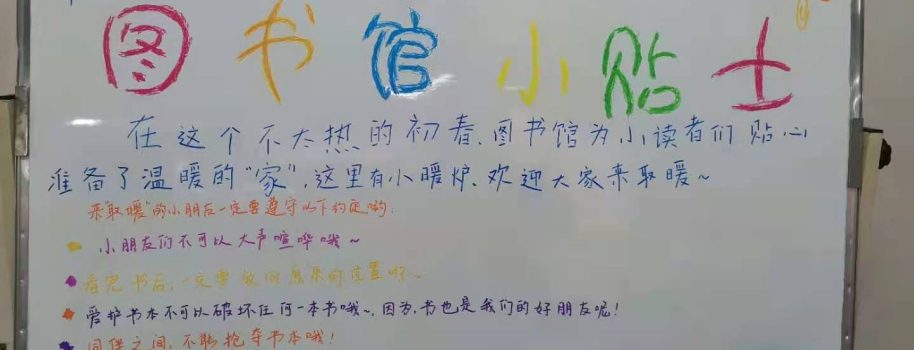 图书馆小贴士
在这个不太热的初春、图书馆为小读者们贴心
准备了温暖的“家”,这里有小暖炉、欢迎大家来取暖~
来“取暖”的小朋友一定要遵守以下约定哟.
小朋友们不可以大声喧哗哦~
看完书后,一定要放回原来的位置呀~
爱护书本不可以破坏任何一本书哦~,因为,书也是我们的好朋友呢!
同伴之间,不能抢夺书本哦!